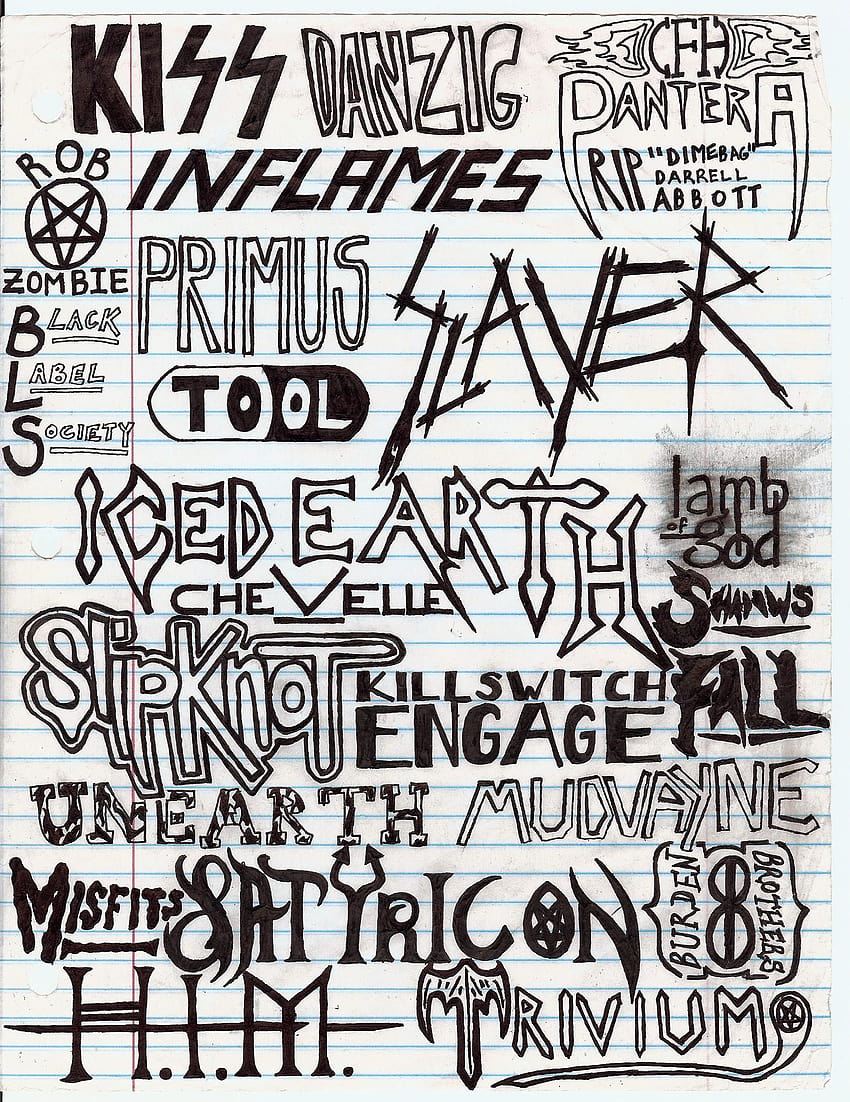 KISS DANZIG
CFH
PANTERA
RIP "DIMEBAG"
DARRELL
ABBOTT
ROB
ZOMBIE
INFLAMES
PRIMUS
SLAYER
BLACK
LABEL
SOCIETY
TOOL
ICED EARTH
lamb
of god
CHEVELLE
SHADOWS
FALL
SlipKnoT
KILLSWITCH
ENGAGE
UNEARTH
MUDVAYNE
MISFITS
SATYRICON
BURDEN
BROTHERS
H.I.M.
TRIVIUM